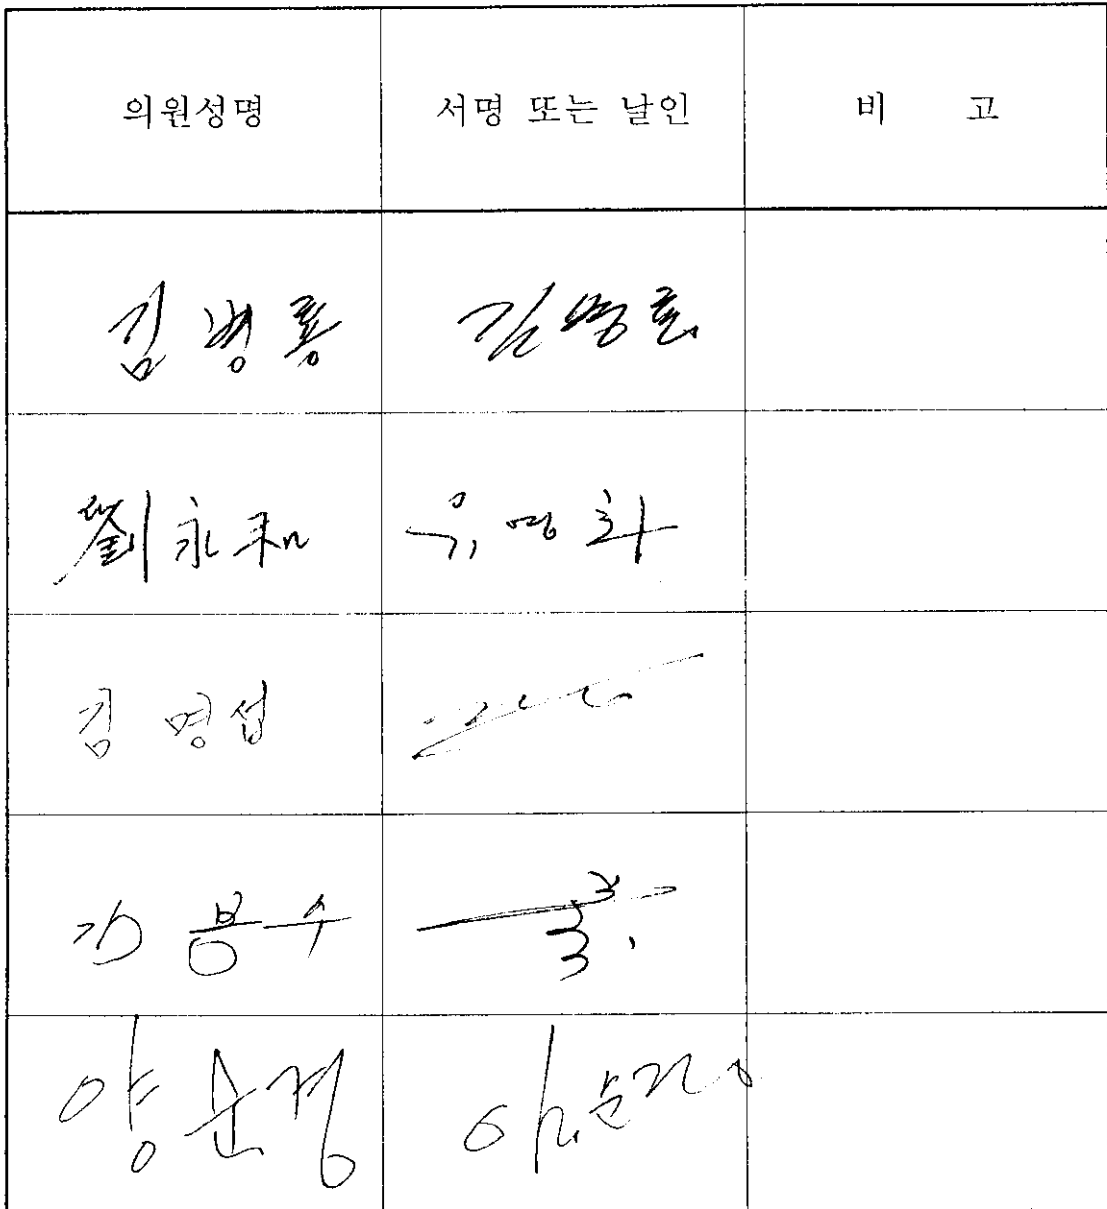 의원성명 서명 또는 날인 비 고
김병룡 김병룡
劉永和 유영화
김명섭
김봉수
양순경 양순경